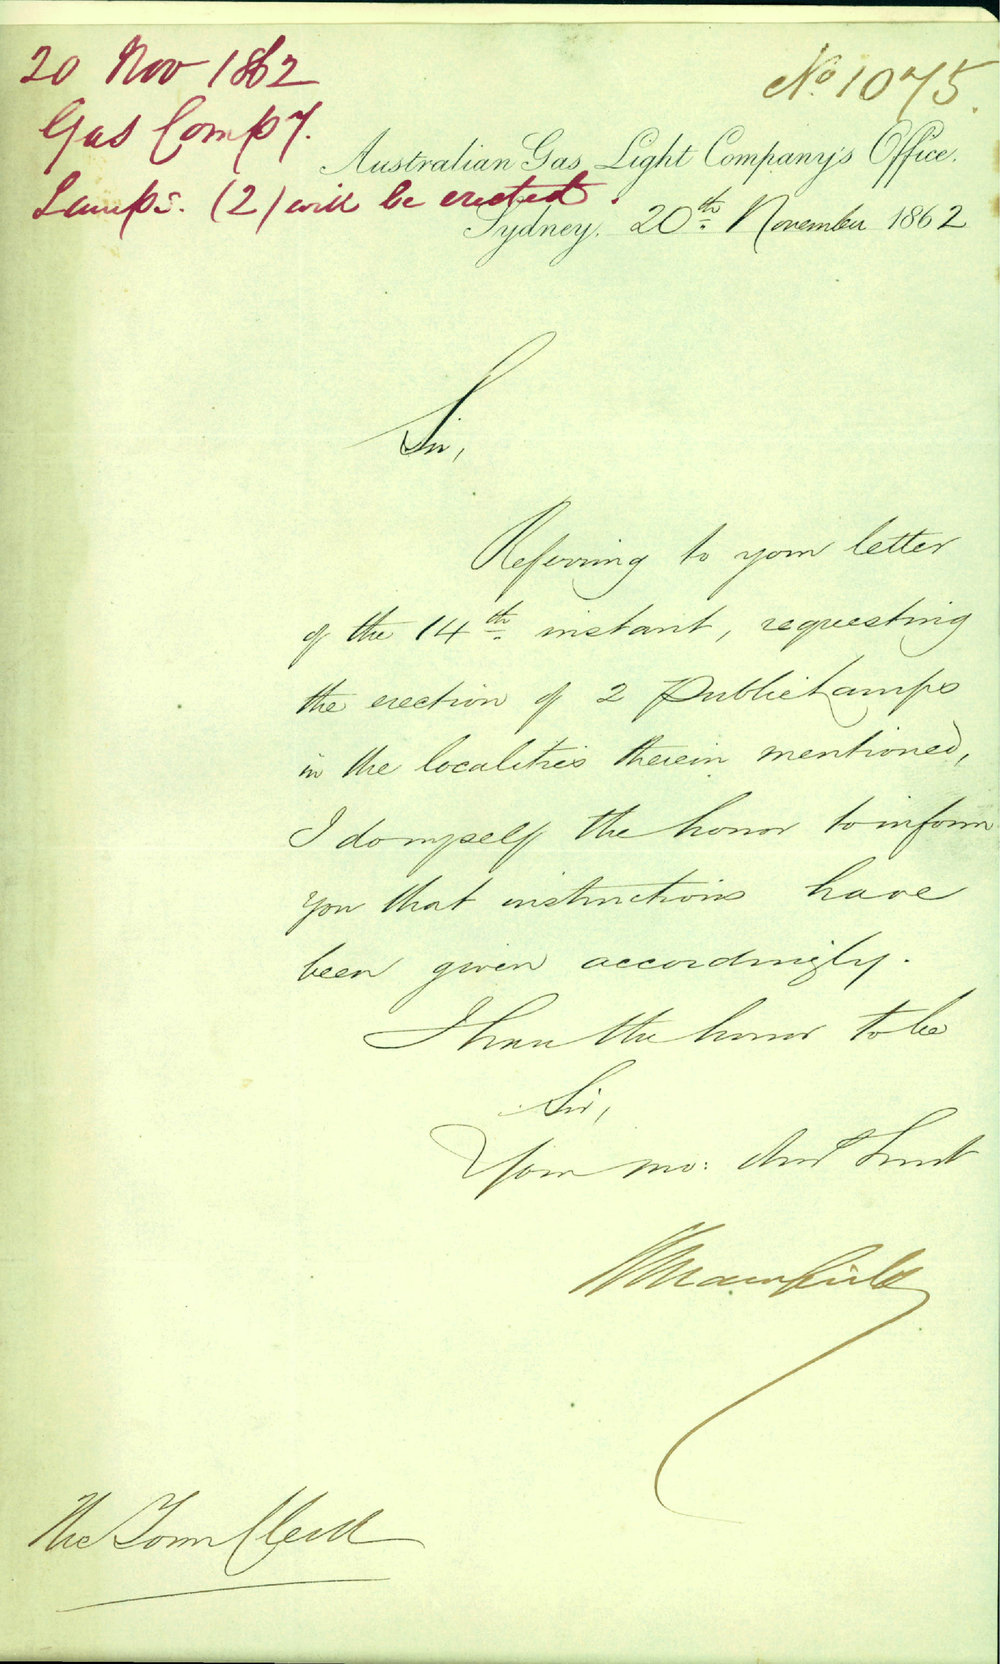 20 Nov 1862
Gas Compy.
Lamps. (2) will be erected.
No 1075.
Australian Gas Light Company's Office.
Sydney. 20th November 1862
Sir,
Referring to your letter
of the 14th instant, requesting
the erection of 2 Public Lamps
in the localities therein mentioned,
I do myself the honor to inform
you that instructions have
been given accordingly.
I have the honor to be
Sir,
Your mo: Obed Servt
The Town Clerk